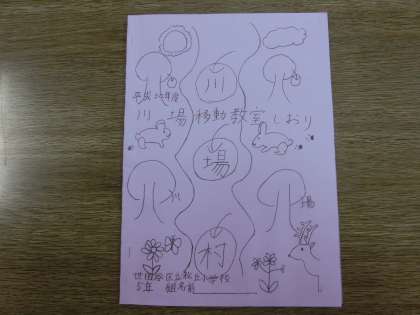 川
平成 年度
川場移動教室しおり
場
川
場
村
世田谷区立松丘小学校
5年 組名前